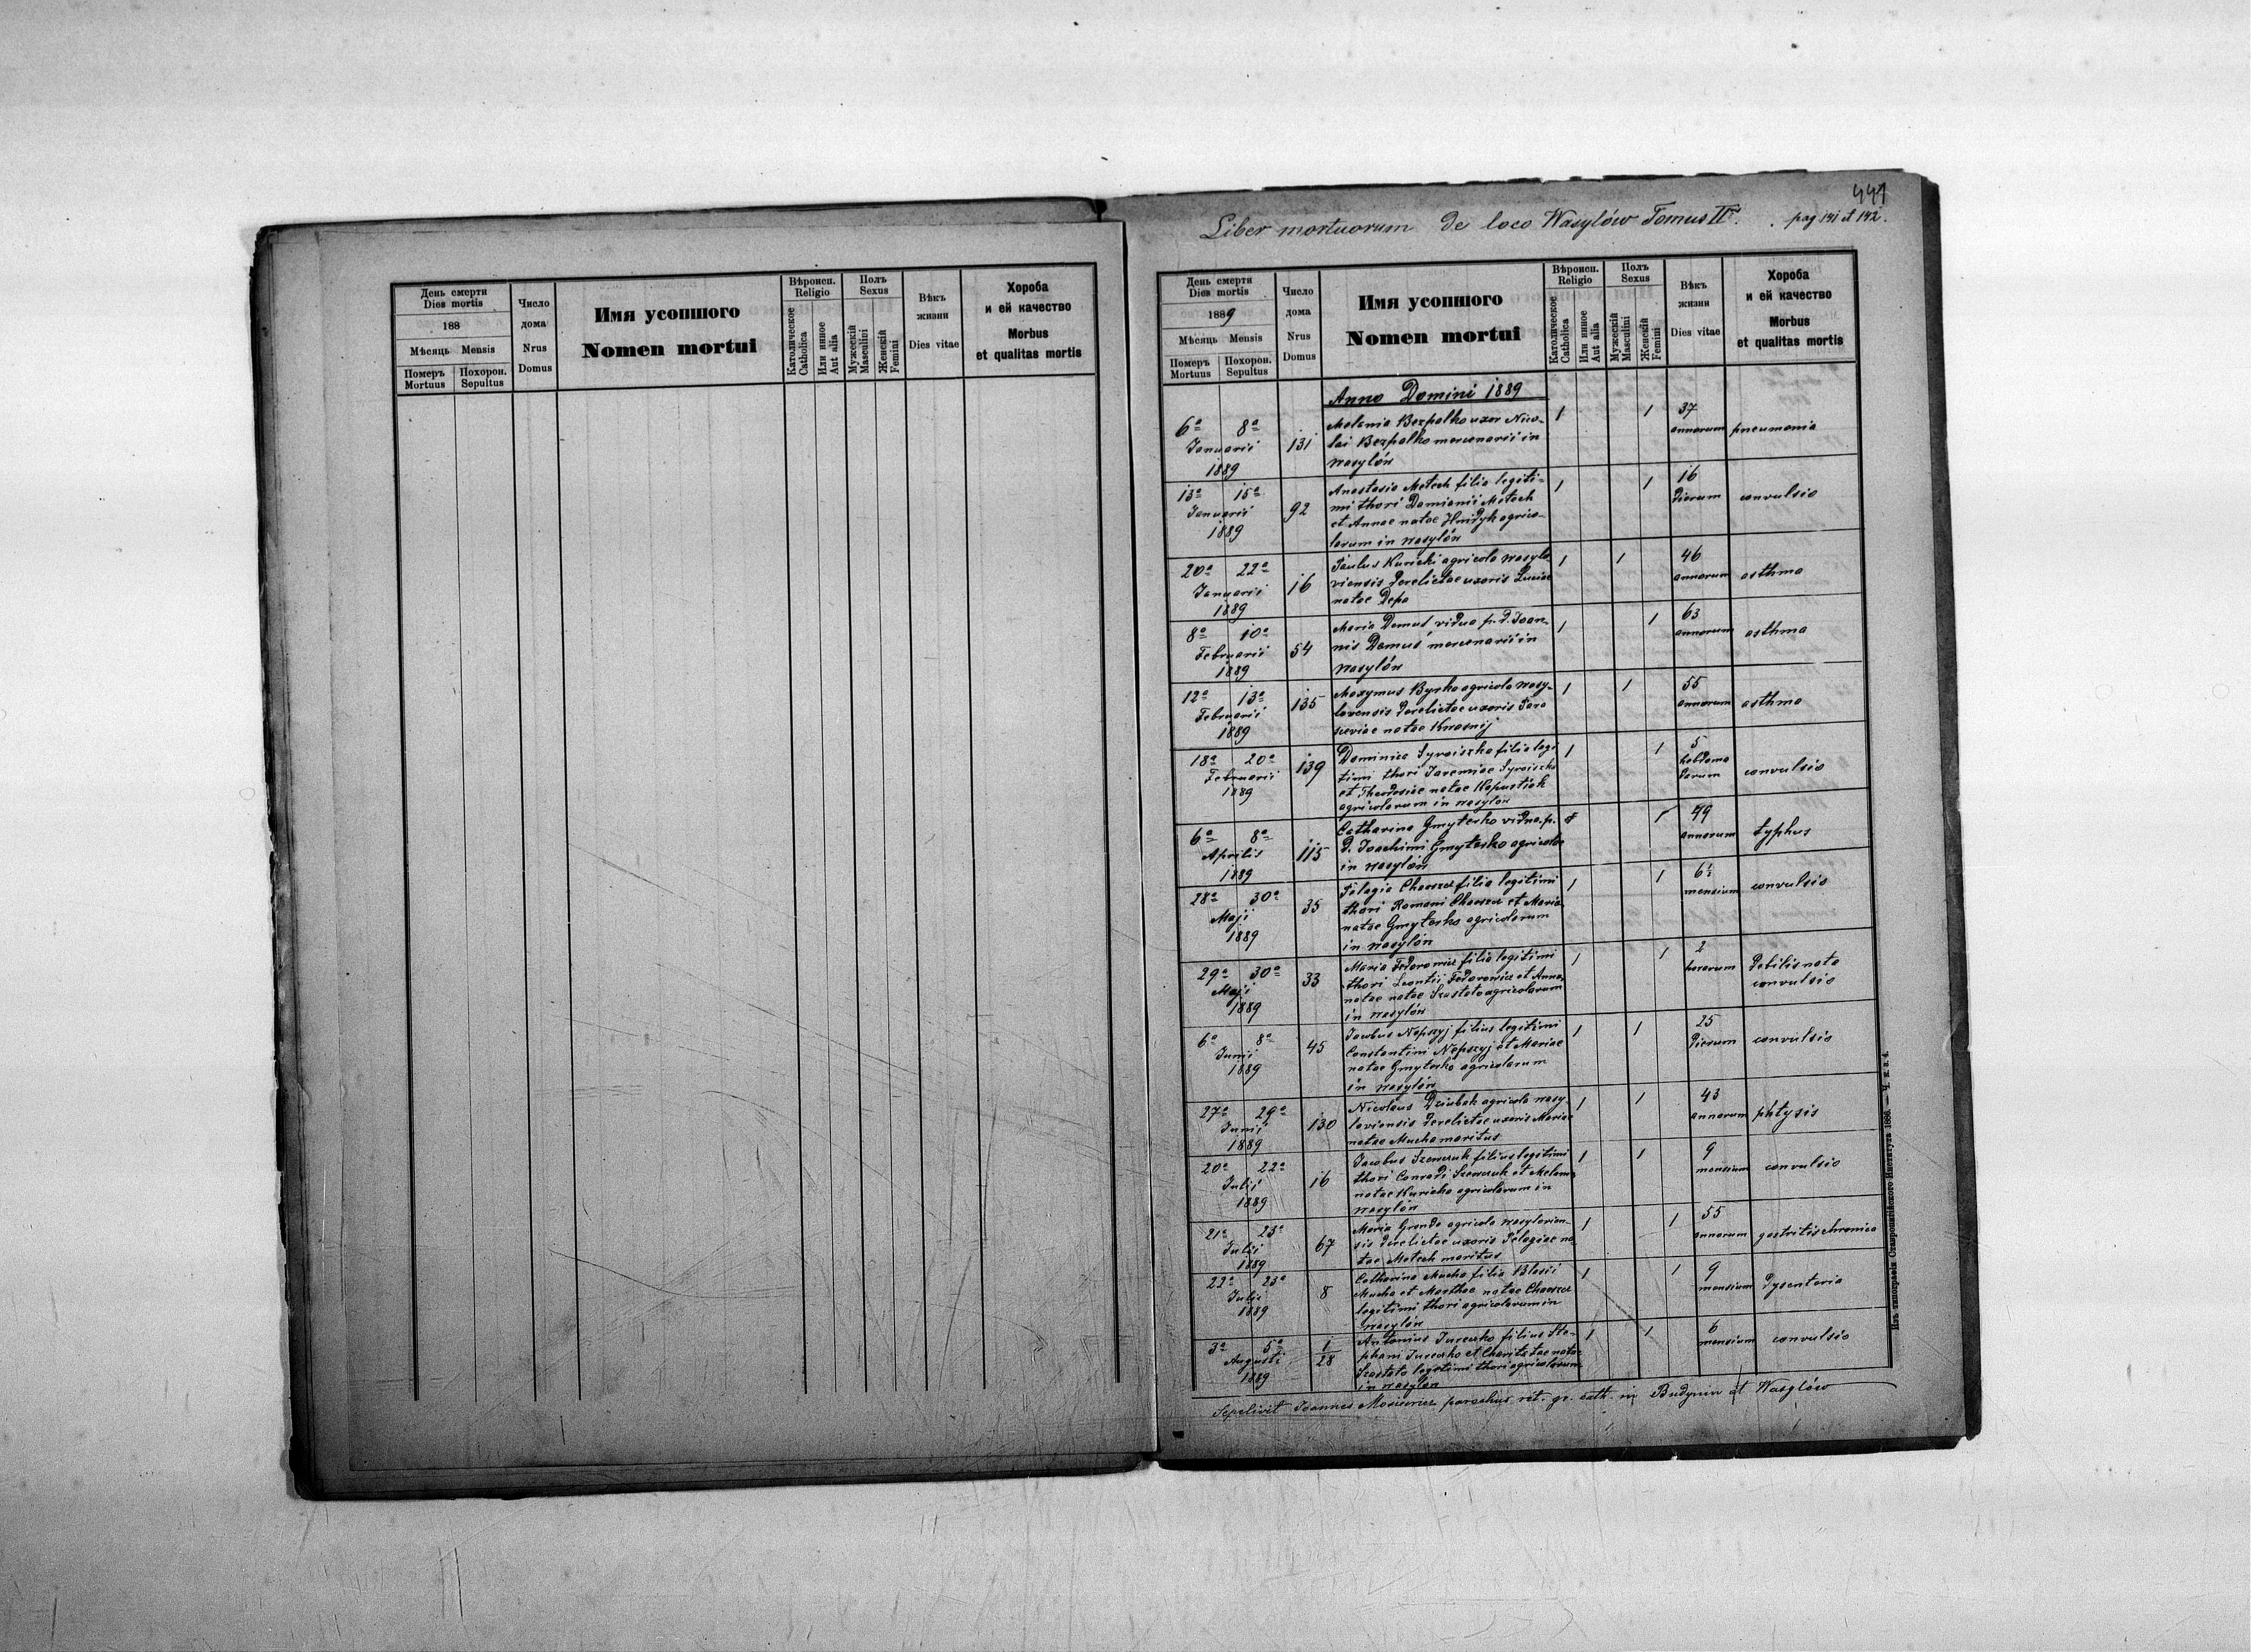 День смерти
Dies mortis
188
Мѣсяць Mensis
Померъ Mortuus
Похорон. Sepultus
Число дома
Nrus Domus
Имя усопшого
Nomen mortui
Вѣроисп.
Religio
Католическое
Catholica
Или инное
Aut alia
Полъ
Sexus
Мужескій
Masculini
Женскій
Femini
Вѣкъ жизни
Dies vitae
Хороба
и ей качество
Morbus
et qualitas mortis
441
Liber mortuorum de loco Wasylów Tomus II. pag 141 et 142.
День смерти
Dies mortis
1889
Мѣсяць Mensis
Померъ Mortuus
Похорон. Sepultus
Число дома
Nrus Domus
Имя усопшого
Nomen mortui
Вѣроисп.
Religio
Католическое
Catholica
Или инное
Aut alia
Полъ
Sexus
Мужескій
Masculini
Женскій
Femini
Вѣкъ жизни
Dies vitae
Хороба
и ей качество
Morbus
et qualitas mortis
Anno Domini 1889
6a 8a Januarii 1889 131
Melania Bezpalko uxor Nico-
lai Bezpalko mercenarii in
Wasylów
1 1 37 annorum pneumonia
13a 15a Januarii 1889 92
Anastasia Metech filia legiti-
mi thori Damianii Metech
et Annae natae Hnidyk agrico-
larum in Wasylów
1 1 16 dierum convulsio
20a 22a Januarii 1889 16
Paulus Kuricki agricola wasylo
viensis derelictae uxoris Luciae
natae Depa
1 1 46 annorum asthma
8a 10a Februarii 1889 54
Maria Demus vidua p. d. Joan-
nis Demus mercenarii in
Wasylów
1 1 63 annorum asthma
12a 13a Februarii 1889 135
Maxymus Byrko agricola wasy-
lovensis derelictae uxoris Para
sceviae natae Krasnij
1 1 55 annorum asthma
18a 20a Februarii 1889 139
Dominica Syroiszka filia legi
timi thori Jaremiae Syroiszka
et Theodosiae natae Kapustiak
agricolarum in Wasylów
1 1 5 hebdoma
darum convulsio
6a 8a Aprilis 1889 115
Catharina Gmyterko vidua p.
d. Joachimi Gmyterko agricolae
in Wasylów
1 1 49 annorum typhus
28a 30a Maji 1889 35
Pelagia filia legitimi
thori Romani et Maria
natae Gmyterko agricolarum
in Wasylów
1 1 6 mensium convulsio
29a 30a Maji 1889 33
Maria Fedorowicz filia legitimi
thori Leontii Fedorowicz et Anna
natae natae Szostato agricolarum
in Wasylów
1 1 2 horarum debilis nata
convulsio
6a 8a Junii 1889 45
Jacobus Nepszyj filius legitimi
Constantini Nepszyj et Mariae
natae Gmyterko agricolarum
in Wasylów
1 1 25 dierum convulsio
27a 29a Junii 1889 130
Nicolaus Dziubak agricola wasy-
loviensis derelictae uxoris Mariae
natae Mucha maritus
1 1 43 annorum phtysis
20a 22a Julii 1889 16
Jacobus Szewczuk filius legitimi
thori Conradi Szewczuk et Melania
natae agricolarum in
Wasylów
1 1 9 mensium convulsio
21a 23a Julii 1889 67
Maria agricola wasylovien-
sis derelictae uxoris Pelagiae na
tae Metech maritus
1 1 55 annorum gastritis chronica
22a 23a Julii 1889 8
Catharina Mucha filia Blasii
Mucha et Marthae natae
legitimi thori agricolarum in
Wasylów
1 1 9 mensium dysenteria
3a 5a Augusti 1889 1/28
Antonius Jureczko filius Ste-
phani Jureczko et Charitatae natae
Szostato legitimi thori agricolarum
in Wasylów
1 1 6 mensium convulsio
Sepelivit Joannes parochus rit. gr. cath. in Budynin et Wasylów
Изъ типографіи Ставропигійского Института 1886. — Ч. к. а. 4.